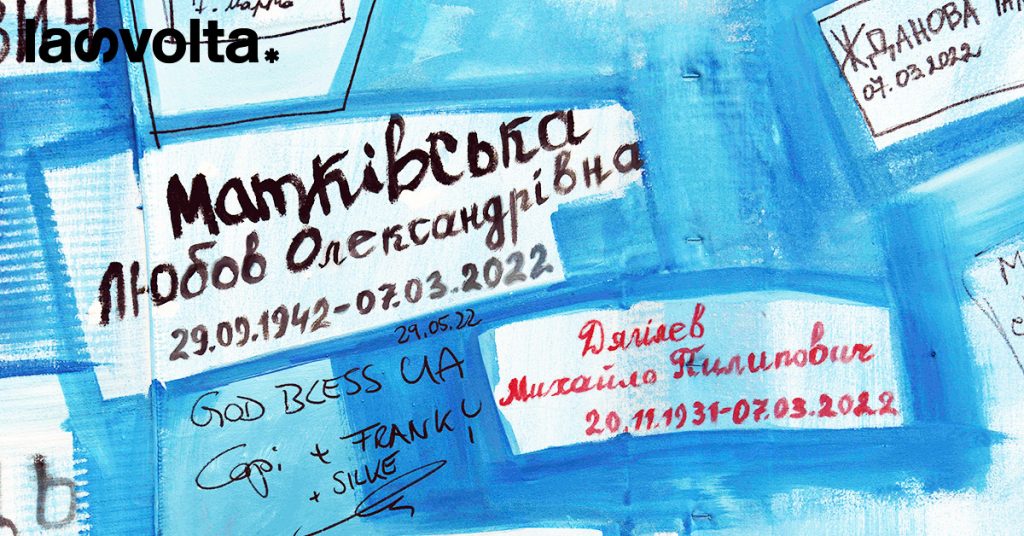 ВИЧ
7. марта
lasvolta.*
ЖДАНОВА
07.03.2022
Матківська
Любов Олександрівна
29.09.1942-07.03.2022
29.05.22
GOD BLESS UA
+ FRANK
+ SILKE
Дягілєв
Михайло Пилипович
20.11.1931-07.03.2022
М
Ь